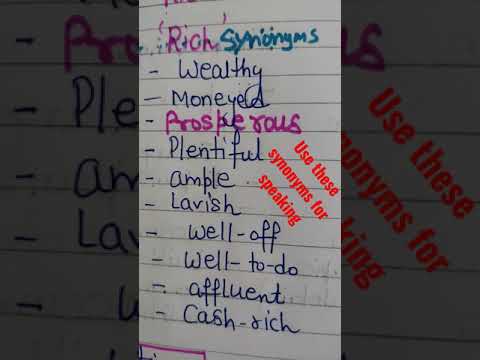 'Rich' Synonyms
- Wealthy
- Moneyed
- Prosperous
- Plentiful
- ample
- Lavish
- well-off
- well-to-do
- affluent
- Cash-rich
Use these
synonyms for
speaking